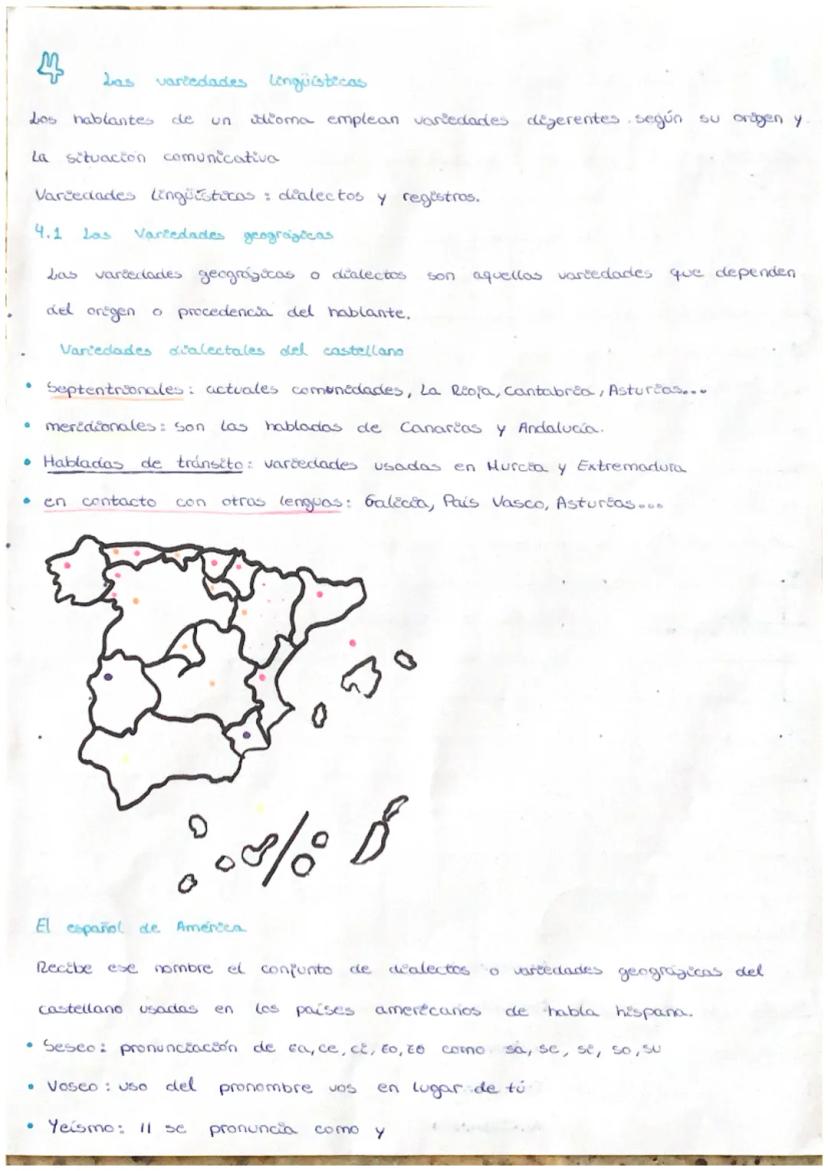 4 Las variedades lingüísticas
Los hablantes de un idioma emplean variedades diferentes según su origen y
la situación comunicativa
Variedades lingüísticas: dialectos y registros.
4.1 Las Variedades geográficas
Las variedades geográficas o dialectos son aquellas variedades que dependen
del origen o procedencia del hablante.
Variedades dialectales del castellano
• Septentrionales: actuales comunidades, La Rioja, Cantabria, Asturias...
• meridionales: son las habladas de Canarias y Andalucía.
• Habladas de tránsito: variedades usadas en Murcia y Extremadura
• en contacto con otras lenguas: Galicia, País Vasco, Asturias...
El español de América
Recibe ese nombre el conjunto de dialectos o variedades geográficas del
castellano usadas en los países americanos de habla hispana.
• Seseo: pronunciación de za, ce, ci, zo, zo como sa, se, si, so, su
• Voseo: uso del pronombre vos en lugar de tú
• Yeísmo: ll se pronuncia como y